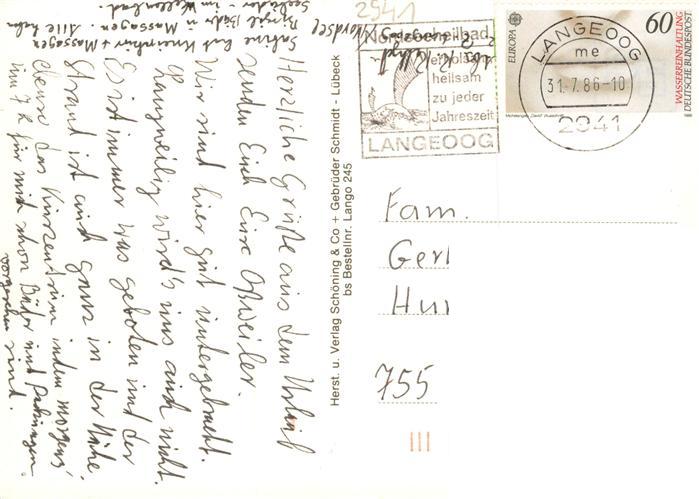 Herzliche Grüße aus dem Urlaub
senden Euch Eure Ossweiler.
Wir sind hier gut untergebracht.
Langweilig wird's uns auch nicht.
Es ist immer was geboten und der
Strand ist auch ganz in der Nähe
ebenso das Kurzentrum indem morgens
um 7 h für mich schon Bäder und Packungen
vorgesehen sind.
Sabine hat Kneippkur + Massagen
Bäder + Massagen. Alle haben
Seebäder - im Wellenbad.
Nordsee
Herst. u. Verlag Schöning & Co + Gebrüder Schmidt - Lübeck
bs Bestellnr. Lango 245
2941
Nordseeheilbad
erholsam
heilsam
zu jeder
Jahreszeit
LANGEOOG
LANGEOOG
me
31.-7.86-10
2941
EUROPA
60
WASSERREINHALTUNG
DEUTSCHE BUNDESPOST
Fam.
Gerl
Hui
755